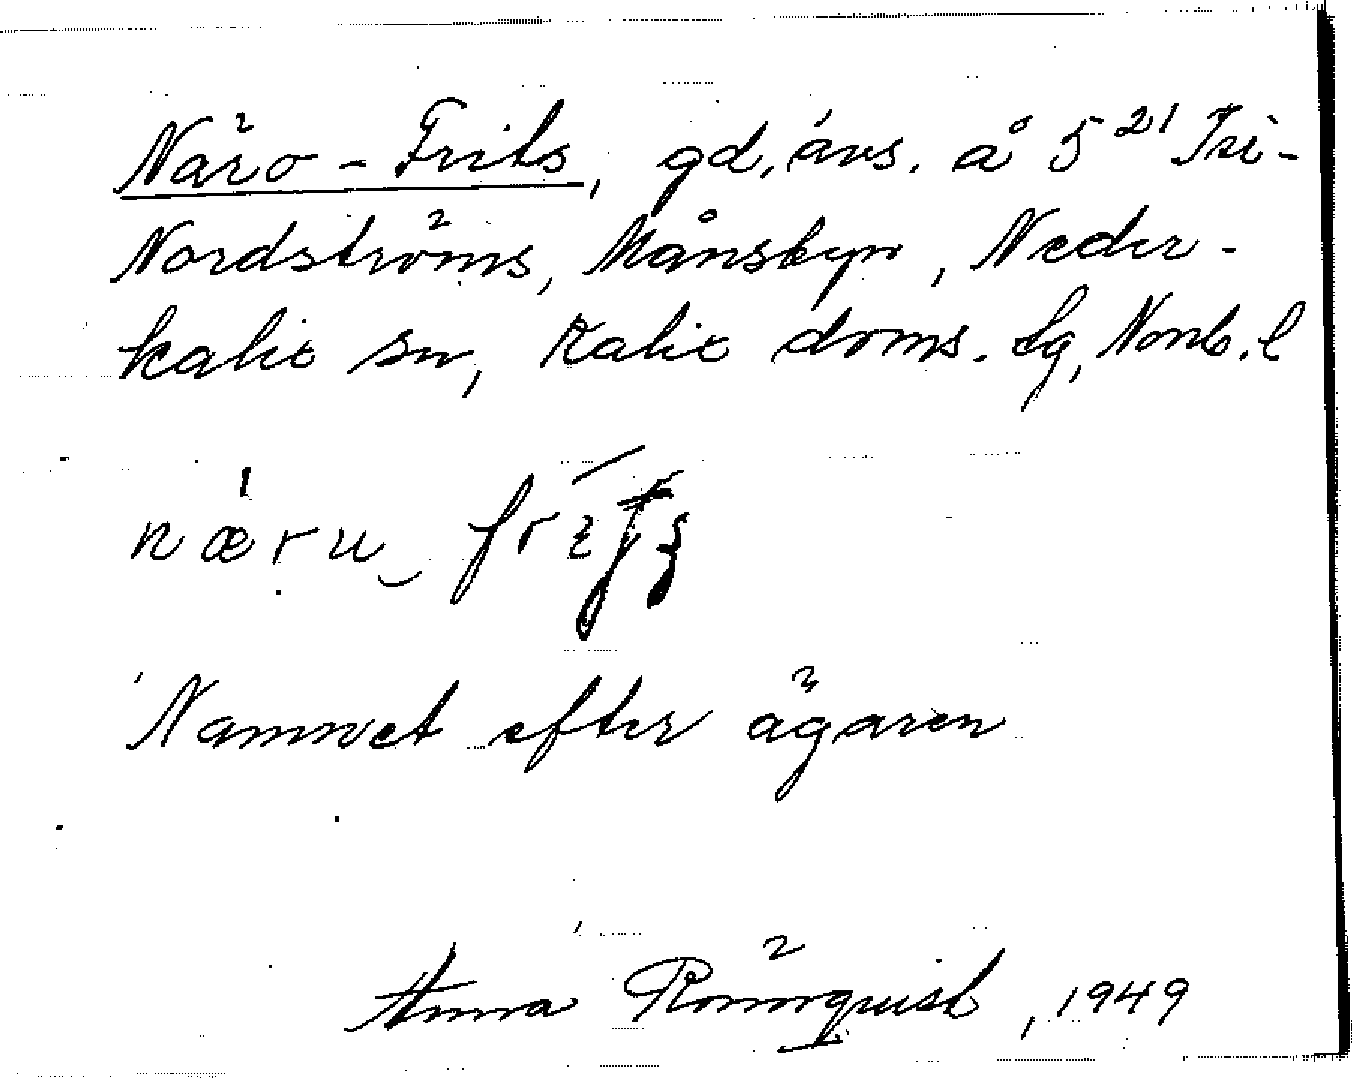 Närö-Frits, gd, ävs. å 5²¹ Tri-
Nordströms, Månsbyn, Neder-
kalix sn, Kalix doms. lg, Norrb. l
næru frits
Namnet efter ägaren
Anna Rönnquist, 1949